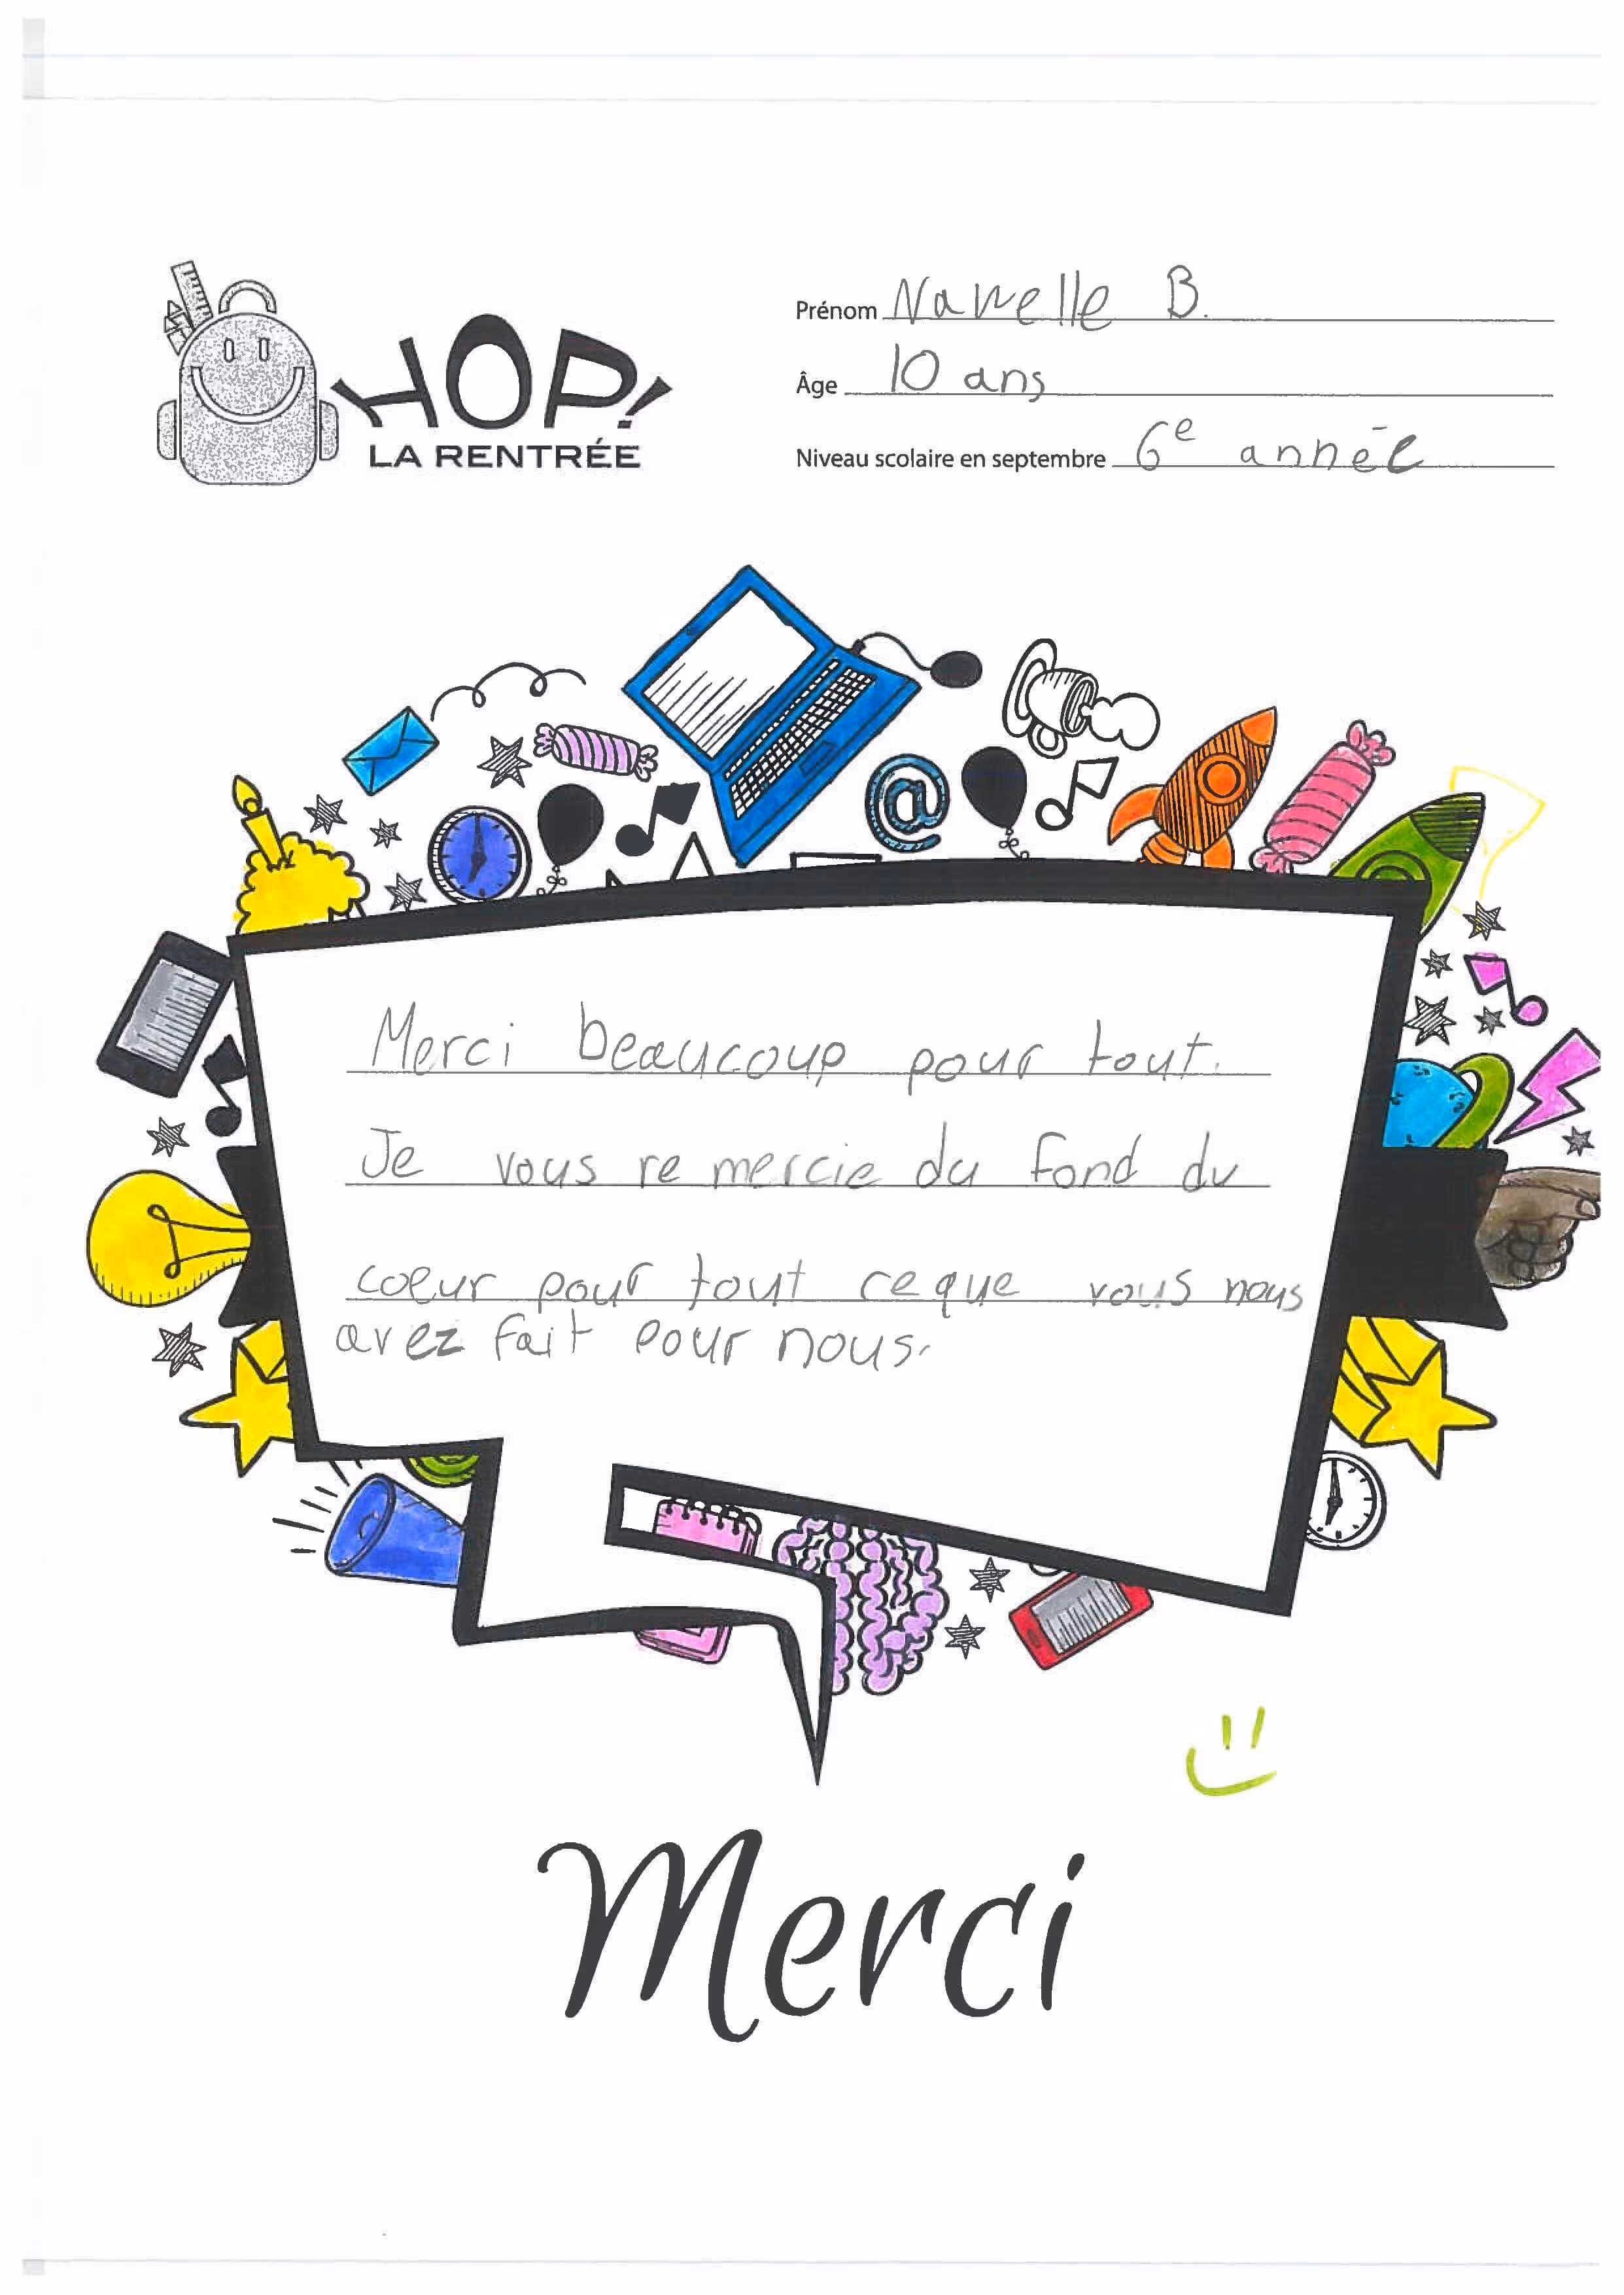 HOP!
LA RENTRÉE
Prénom Nawelle B.
Âge 10 ans
Niveau scolaire en septembre 6e année
@
Merci beaucoup pour tout.
Je vous re mercie du fond du
coeur pour tout ce que vous nous
avez fait pour nous.
Merci